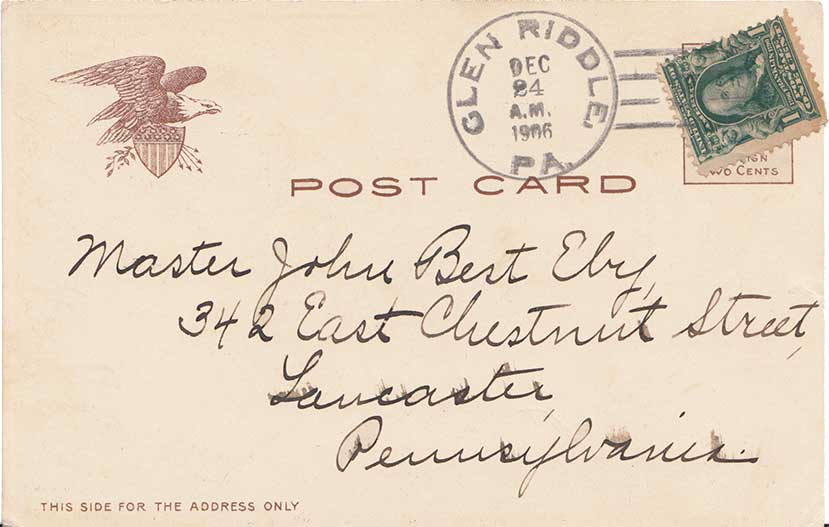 GLEN RIDDLE,
DEC
24
A.M.
1906
PA.
1 1
POST CARD
TWO CENTS
Master John Best Eby,
342 East Chestnut Street,
Lancaster,
Pennsylvania.
THIS SIDE FOR THE ADDRESS ONLY